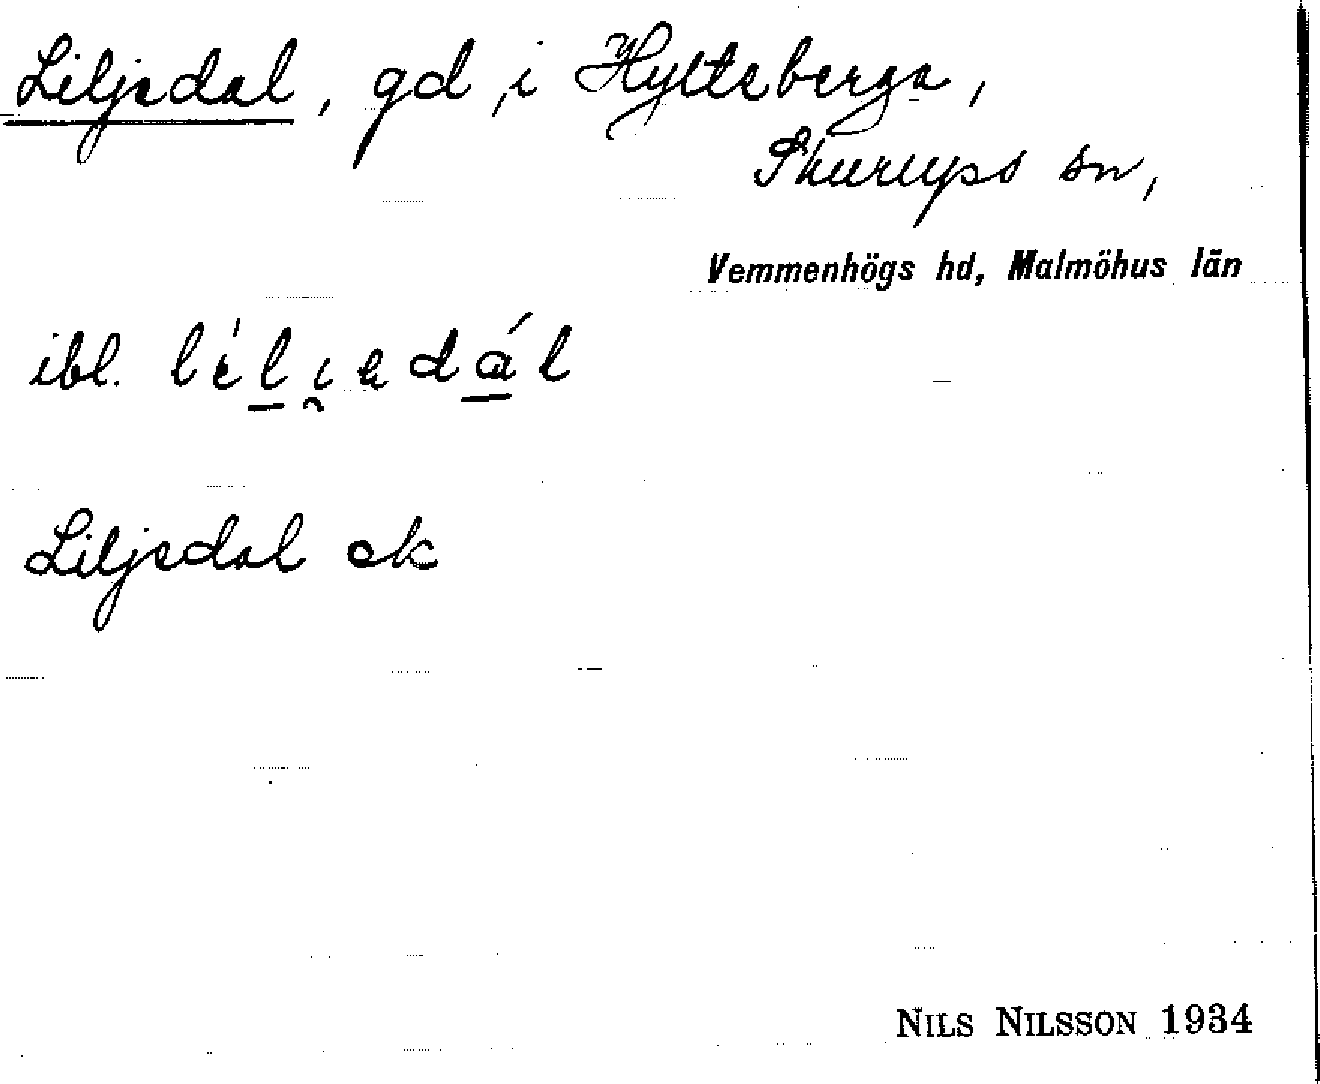 Liljedal, gd, i Hylteberga,
Skurups sn,
Vemmenhögs hd, Malmöhus län
ibl.
Liljedal ek
NILS NILSSON 1934